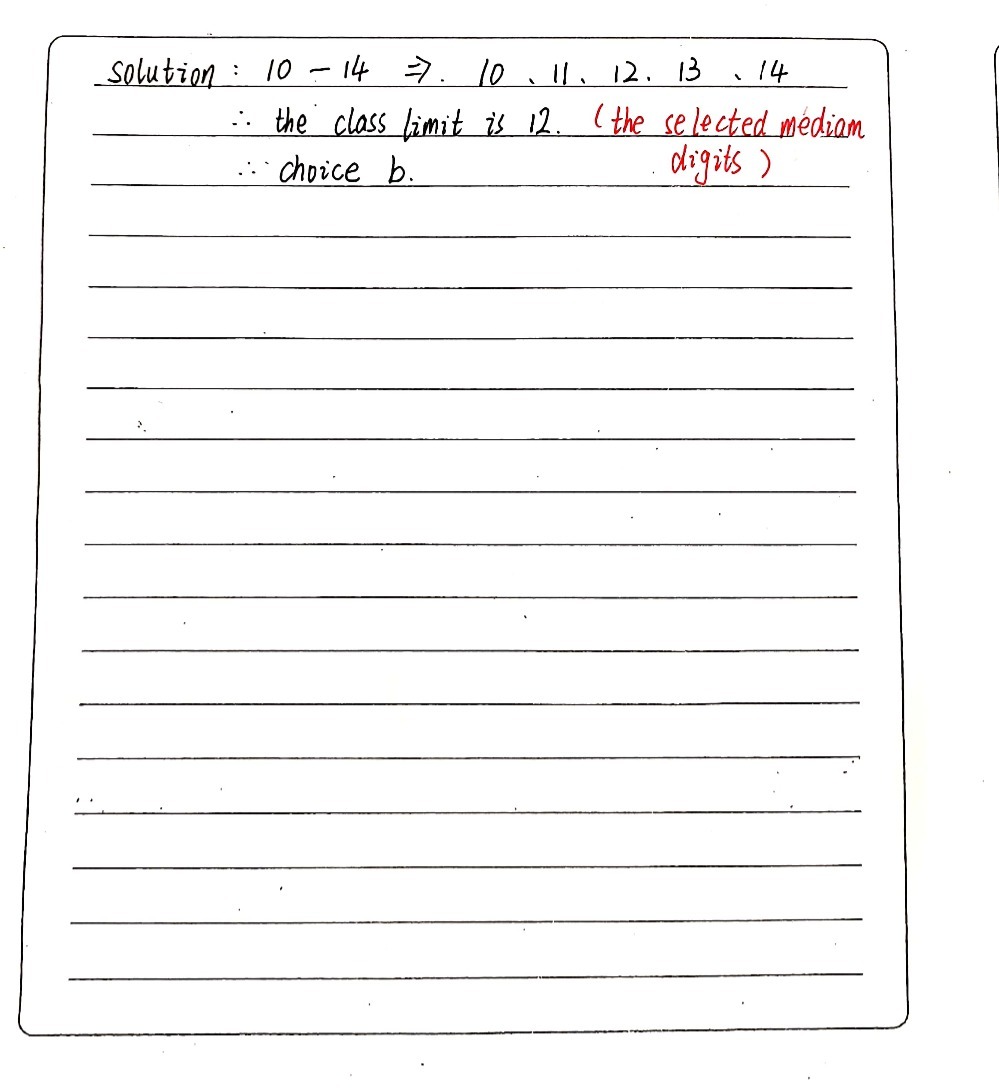 solution : 10 - 14 ⇒. 10、11、12. 13、14
∴ the class limit is 12. (the selected mediam
digits)
∴ choice b.